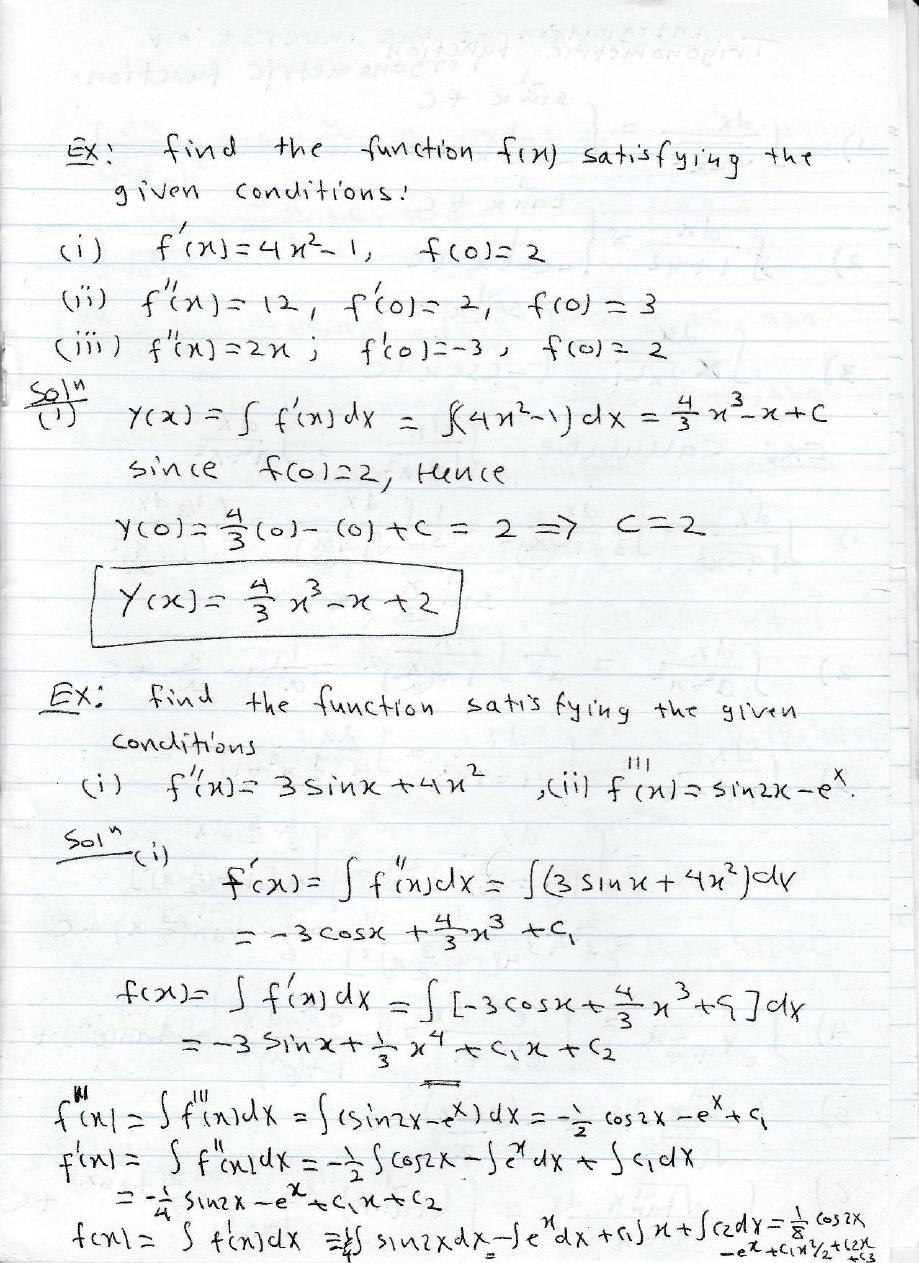 Ex: find the function f(x) satisfying the
given conditions:
(i) f'(x) = 4x² - 1, f(0) = 2
(ii) f''(x) = 12, f'(0) = 2, f(0) = 3
(iii) f''(x) = 2x ; f'(0) = -3, f(0) = 2
Solⁿ
(i) Y(x) = ∫ f'(x) dx = ∫(4x²-1) dx = 4/3 x³ - x + C
since f(0) = 2, Hence
Y(0) = 4/3 (0) - (0) + C = 2 => C = 2
Y(x) = 4/3 x³ - x + 2
Ex: find the function satisfying the given
conditions
(i) f''(x) = 3 sinx + 4x² , (ii) f'''(x) = sin2x - eˣ.
Solⁿ (i)
f'(x) = ∫ f''(x) dx = ∫(3 sinx + 4x²) dx
= -3 cosx + 4/3 x³ + C₁
f(x) = ∫ f'(x) dx = ∫ [-3 cosx + 4/3 x³ + C₁] dx
= -3 sinx + 1/3 x⁴ + C₁x + C₂
f''(x) = ∫ f'''(x) dx = ∫ (sin2x - eˣ) dx = -1/2 cos2x - eˣ + C₁
f'(x) = ∫ f''(x) dx = -1/2 ∫ cos2x - ∫ eˣ dx + ∫ C₁ dx
= -1/4 sin2x - eˣ + C₁x + C₂
f(x) = ∫ f'(x) dx = ∫ sin2x dx - ∫ eˣ dx + C₁∫ x + ∫ C₂ dx = 1/8 cos2x
- eˣ + C₁x²/2 + C₂x
+ C₃